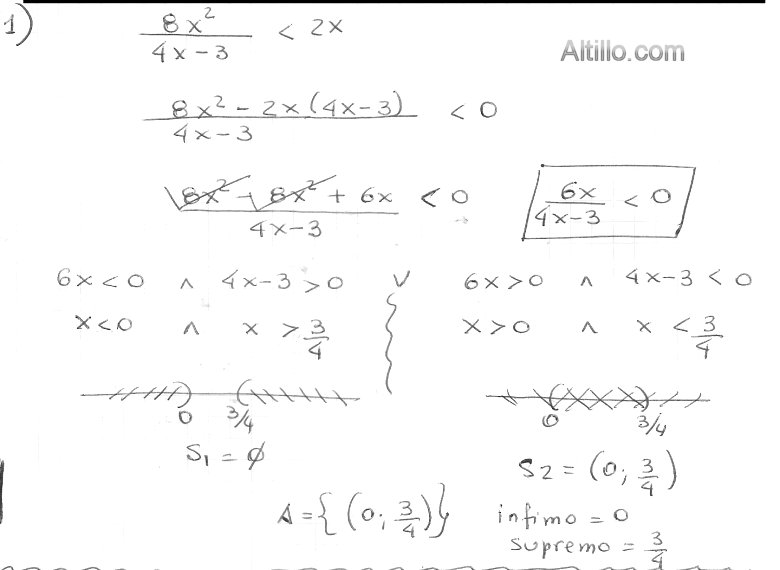 1)
8x² / 4x-3 < 2x
Altillo.com
8x² - 2x(4x-3) / 4x-3 < 0
8x² - 8x² + 6x / 4x-3 < 0    6x / 4x-3 < 0
6x<0 ∧ 4x-3>0 ∨ 6x>0 ∧ 4x-3<0
x<0 ∧ x > 3/4    x>0 ∧ x < 3/4
0 3/4    0 3/4
S1 = ∅    S2 = (0; 3/4)
A = { (0; 3/4) }    infimo = 0
supremo = 3/4